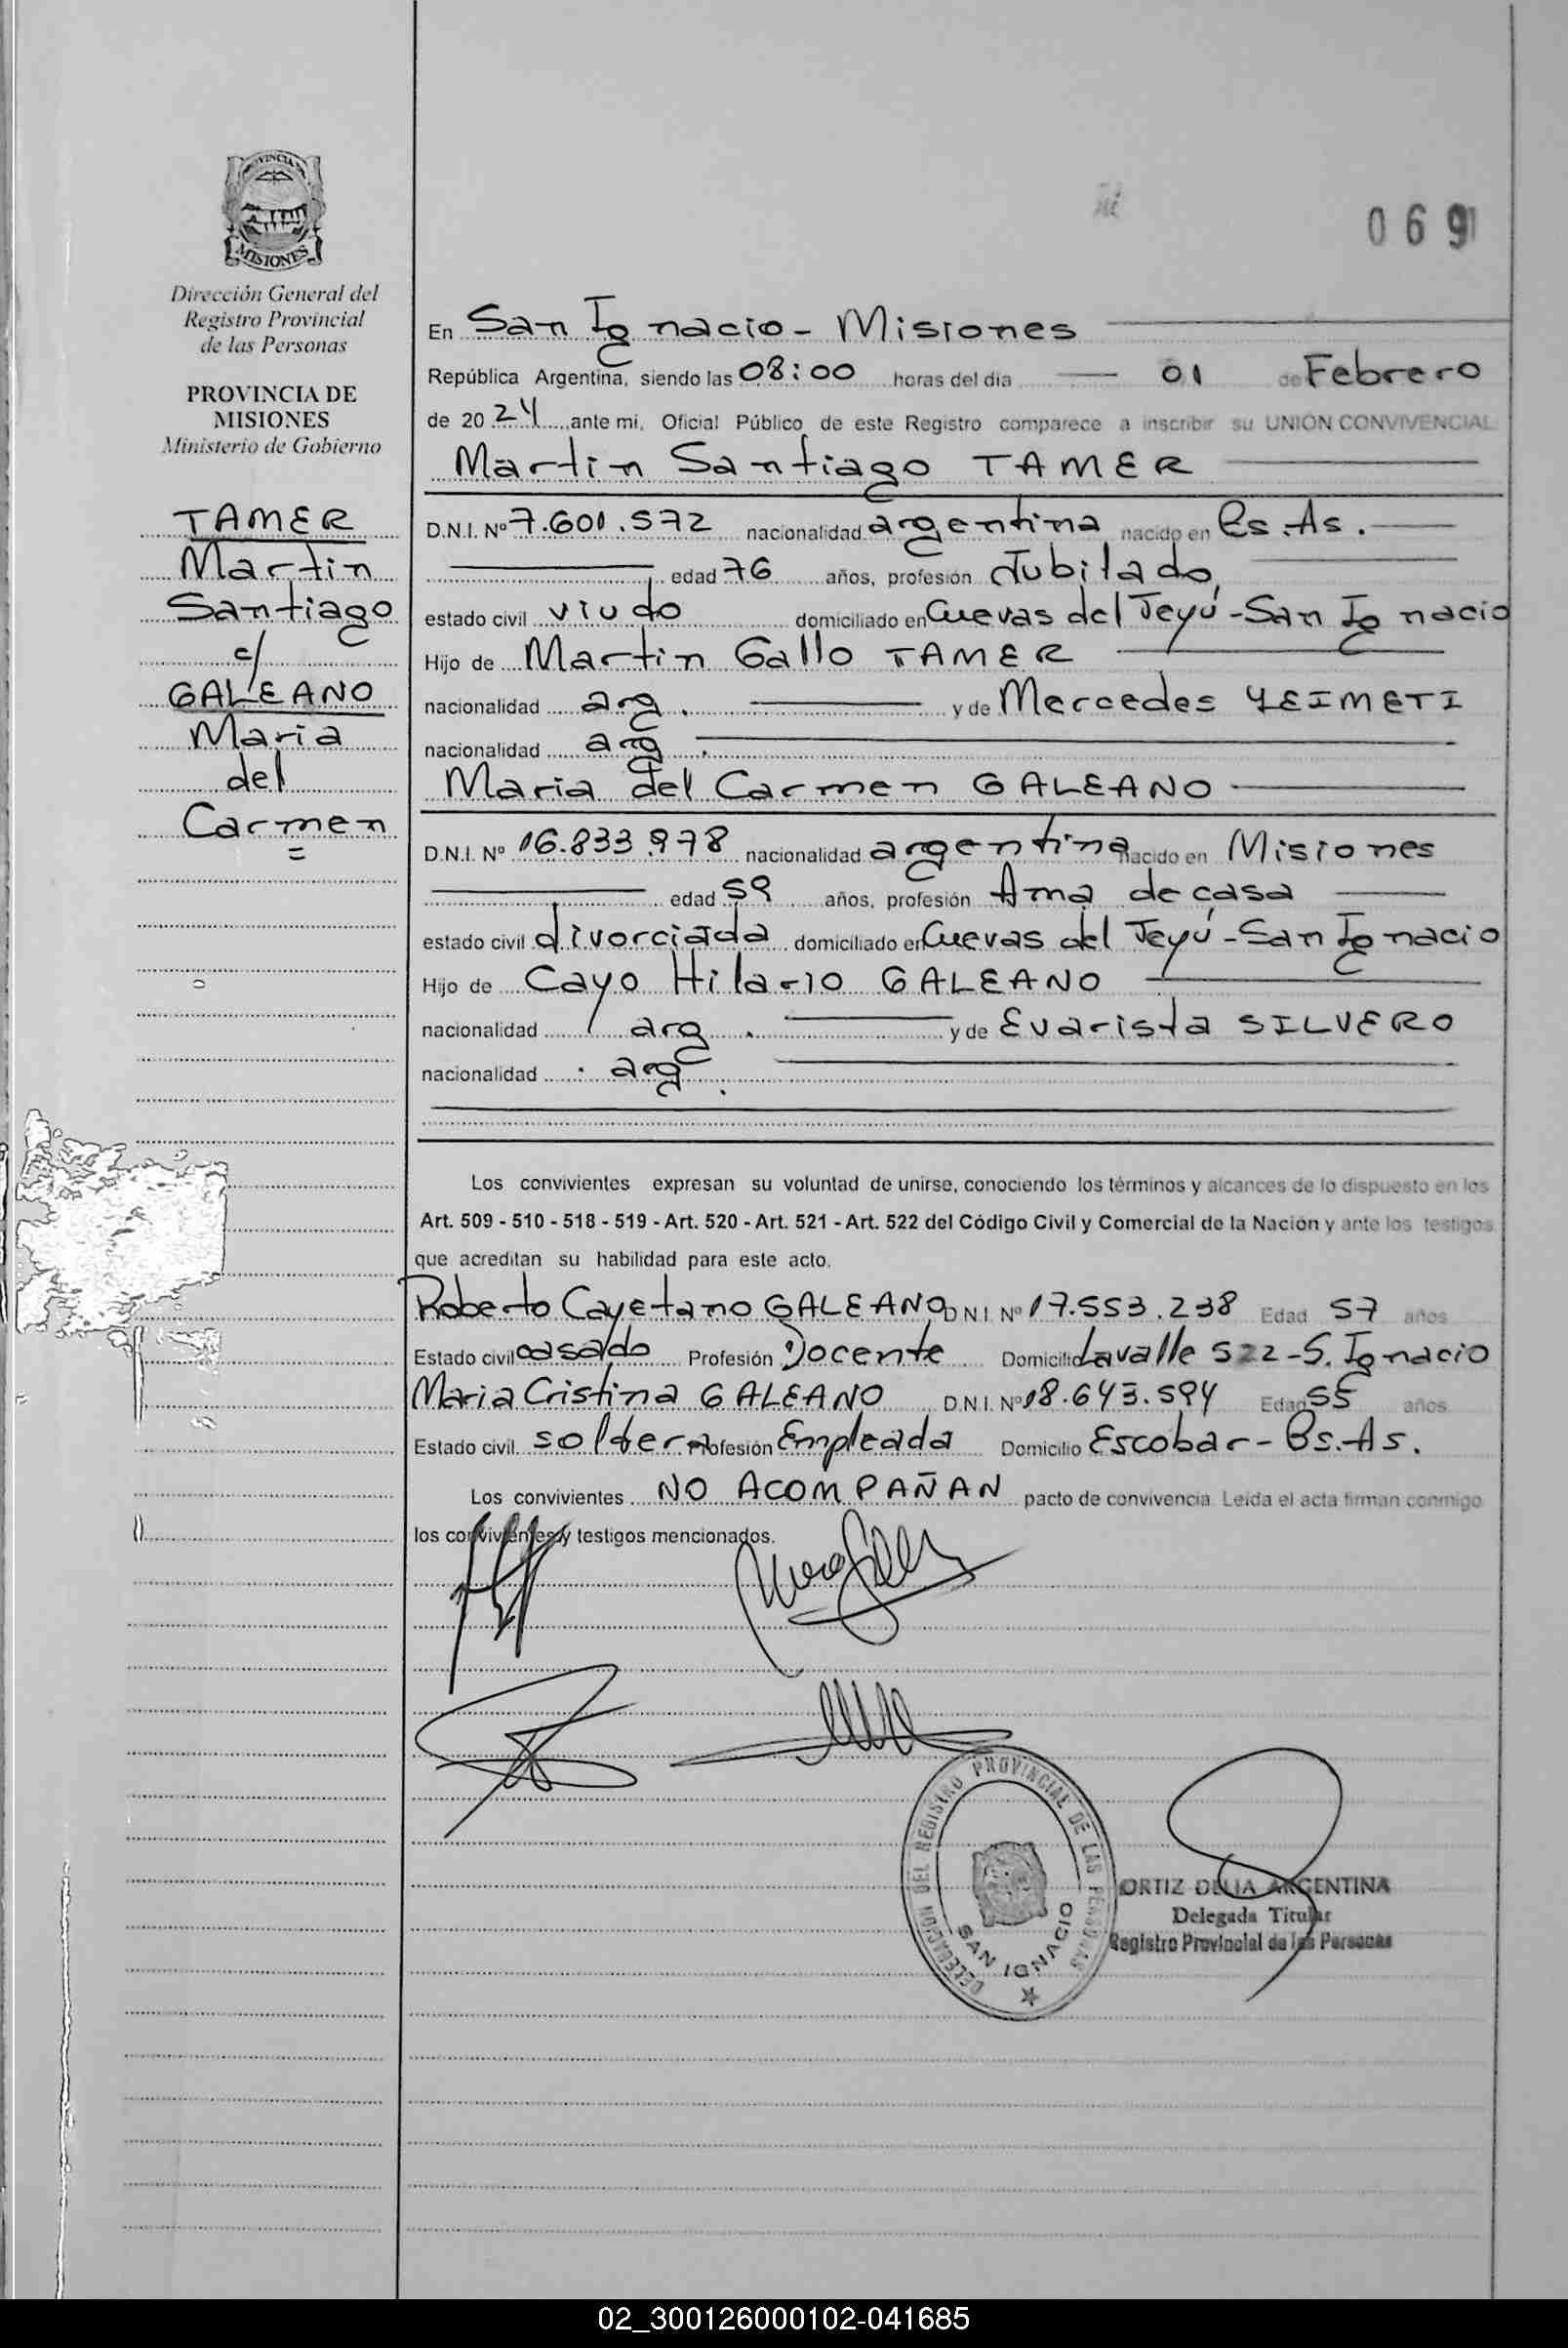 PROVINCIA
MISIONES
Dirección General del
Registro Provincial
de las Personas
PROVINCIA DE
MISIONES
Ministerio de Gobierno
TAMER
Martin
Santiago
c/
GALEANO
Maria
del
Carmen
=
069
En San Ignacio - Misiones
República Argentina, siendo las 08:00 horas del día 01 de Febrero
de 2024 ante mi, Oficial Público de este Registro comparece a inscribir su UNIÓN CONVIVENCIAL
Martin Santiago TAMER
D.N.I. Nº 7.601.572 nacionalidad argentina nacido en Bs.As.
edad 76 años, profesión Jubilado
estado civil viudo domiciliado en Cuevas del Teyú - San Ignacio
Hijo de Martin Gallo TAMER
nacionalidad arg. y de Mercedes YEIMETI
nacionalidad arg.
Maria del Carmen GALEANO
D.N.I. Nº 16.833.978 nacionalidad argentina nacido en Misiones
edad 59 años, profesión Ama de casa
estado civil divorciada domiciliado en Cuevas del Teyú - San Ignacio
Hijo de Cayo Hilario GALEANO
nacionalidad arg. y de Evarista SILVERO
nacionalidad arg.
Los convivientes expresan su voluntad de unirse, conociendo los términos y alcances de lo dispuesto en los
Art. 509 - 510 - 518 - 519 - Art. 520 - Art. 521 - Art. 522 del Código Civil y Comercial de la Nación y ante los testigos
que acreditan su habilidad para este acto.
Roberto Cayetano GALEANO D.N.I. Nº 17.553.238 Edad 57 años
Estado civil casado Profesión Docente Domicilio Lavalle 522 - S. Ignacio
Maria Cristina GALEANO D.N.I. Nº 18.643.594 Edad 55 años
Estado civil soltera Profesión Empleada Domicilio Escobar - Bs.As.
Los convivientes NO ACOMPAÑAN pacto de convivencia. Leída el acta firman conmigo
los convivientes y testigos mencionados.
DELEGACION DEL REGISTRO PROVINCIAL DE LAS PERSONAS
SAN IGNACIO
ORTIZ DELIA ARGENTINA
Delegada Titular
Registro Provincial de las Personas
02_300126000102-041685